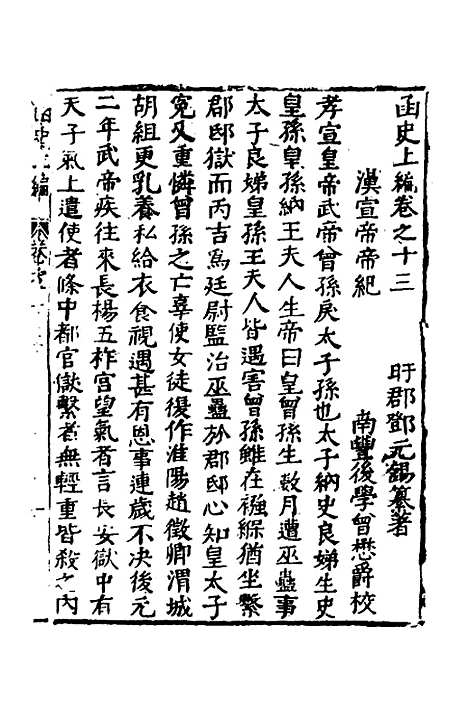 函史上編卷之十三
盱郡鄧元錫纂著
漢宣帝帝紀
南豐後學曾懋爵校
孝宣皇帝武帝曾孫戾太子孫也太子納史良娣生史
皇孫皇孫納王夫人生帝曰皇曾孫生數月遭巫蠱事
太子良娣皇孫王夫人皆遇害曾孫雖在襁緥猶坐繫
郡邸獄而丙吉為廷尉監治巫蠱於郡邸心知皇太子
冤又重憐曾孫之亡辜使女徒復作淮陽趙徵卿渭城
胡組更乳養私給衣食視遇甚有恩事連歲不决後元
二年武帝疾往來長楊五柞宮望氣者言長安獄中有
天子氣上遣使者條中都官獄繫者無輕重皆殺之内